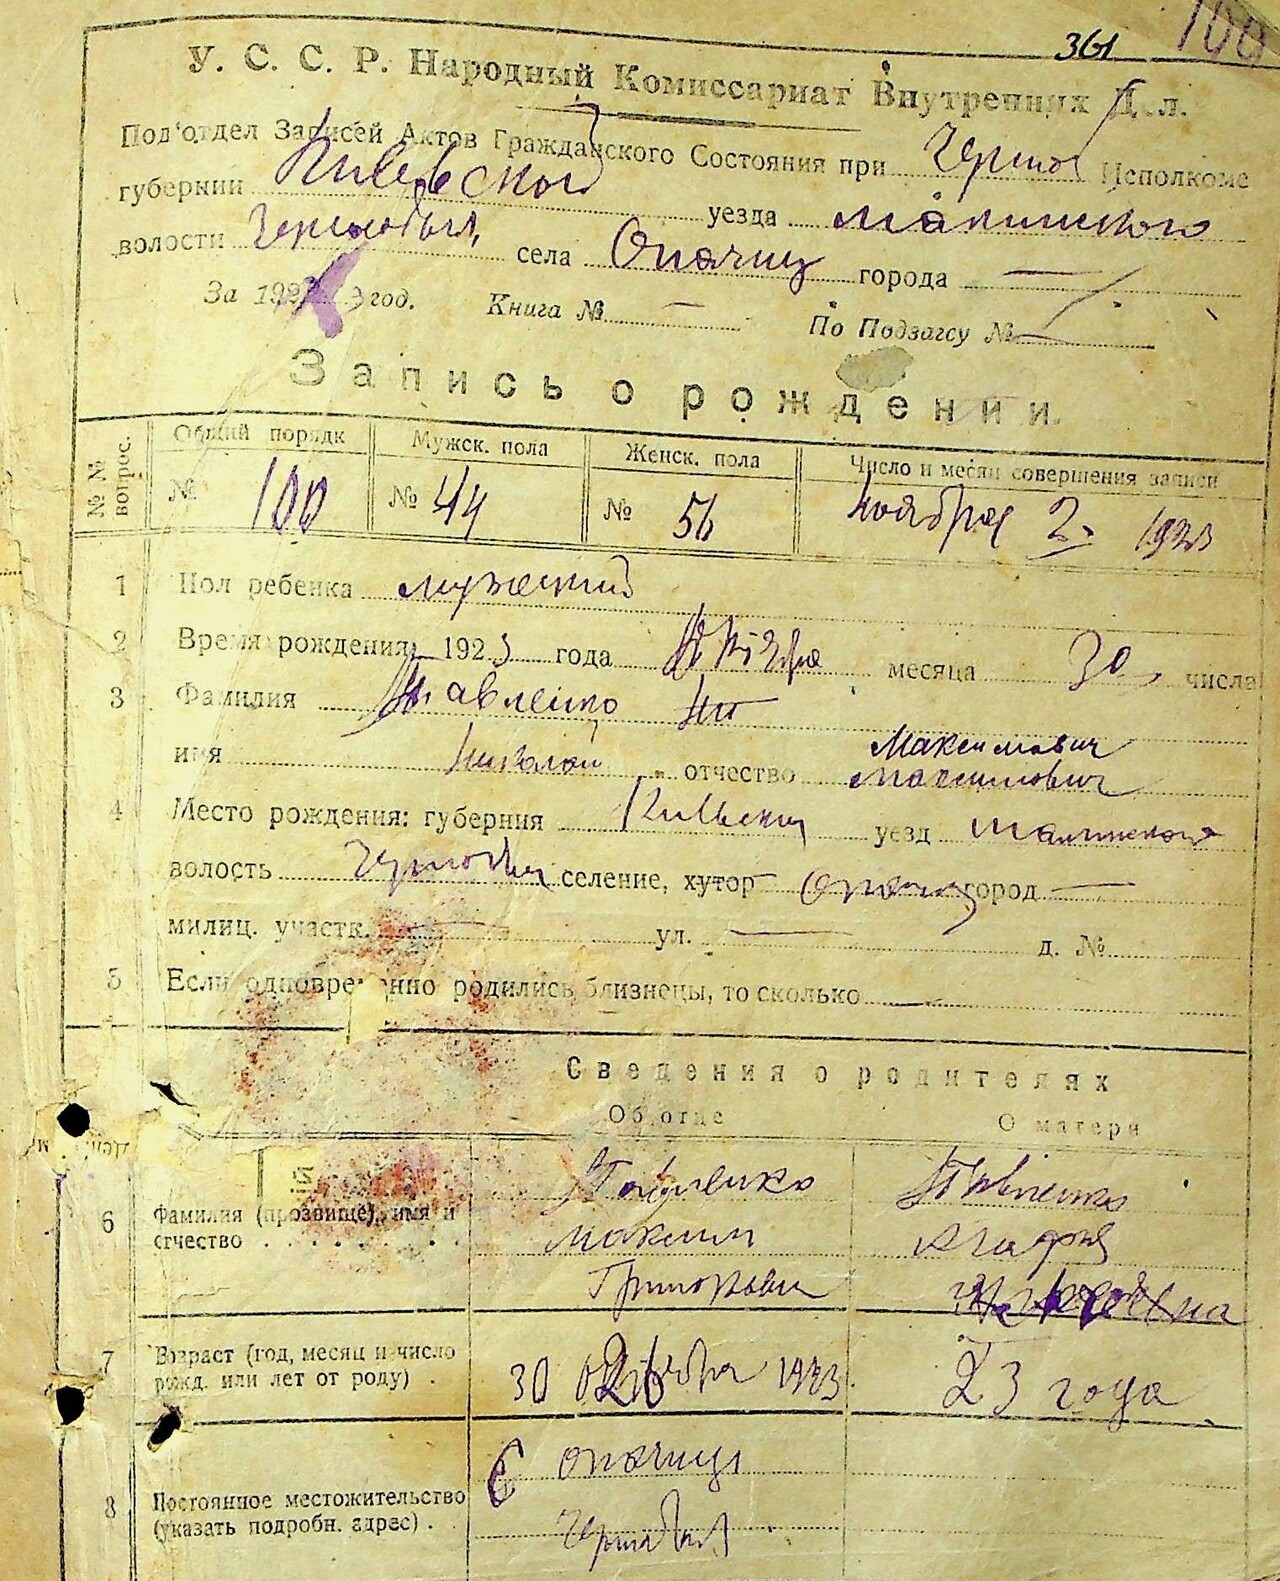 361 100
У. С. С. Р. Народный Комиссариат Внутренних Дел.
Под'отдел Записей Актов Гражданского Состояния при Черноб Исполкоме
губернии Киевской уезда Малинского
волости Чернобыл, села Опачиц города —
За 192 3 год. Книга № — По Подзагсу № —
Запись о рождении.
№ № вопрос. Общий порядк Мужск. пола Женск. пола Число и месяц совершения записи
№ 100 № 44 № 56 Ноября 2. 1923
1 Пол ребенка мужеский
2 Время рождения 1923 года Октября месяца 30 числа
3 Фамилия Павленко
Максимович
имя Николай отчество Максимович
4 Место рождения: губерния Киевская уезд Малинского
волость селение, хутор Опачиц город —
милиц. участк. — ул. — д. №
5 Если одновременно родились близнецы, то сколько —
Сведения о родителях
Об отце О матери
6 Фамилия (прозвище), имя и отчество
Павленко Павленко
Максим Агафия
7 Возраст (год, месяц и число рожд. или лет от роду)
30 26 1923. 23 года
8 Постоянное местожительство (указать подробн. адрес)
С Опачицы